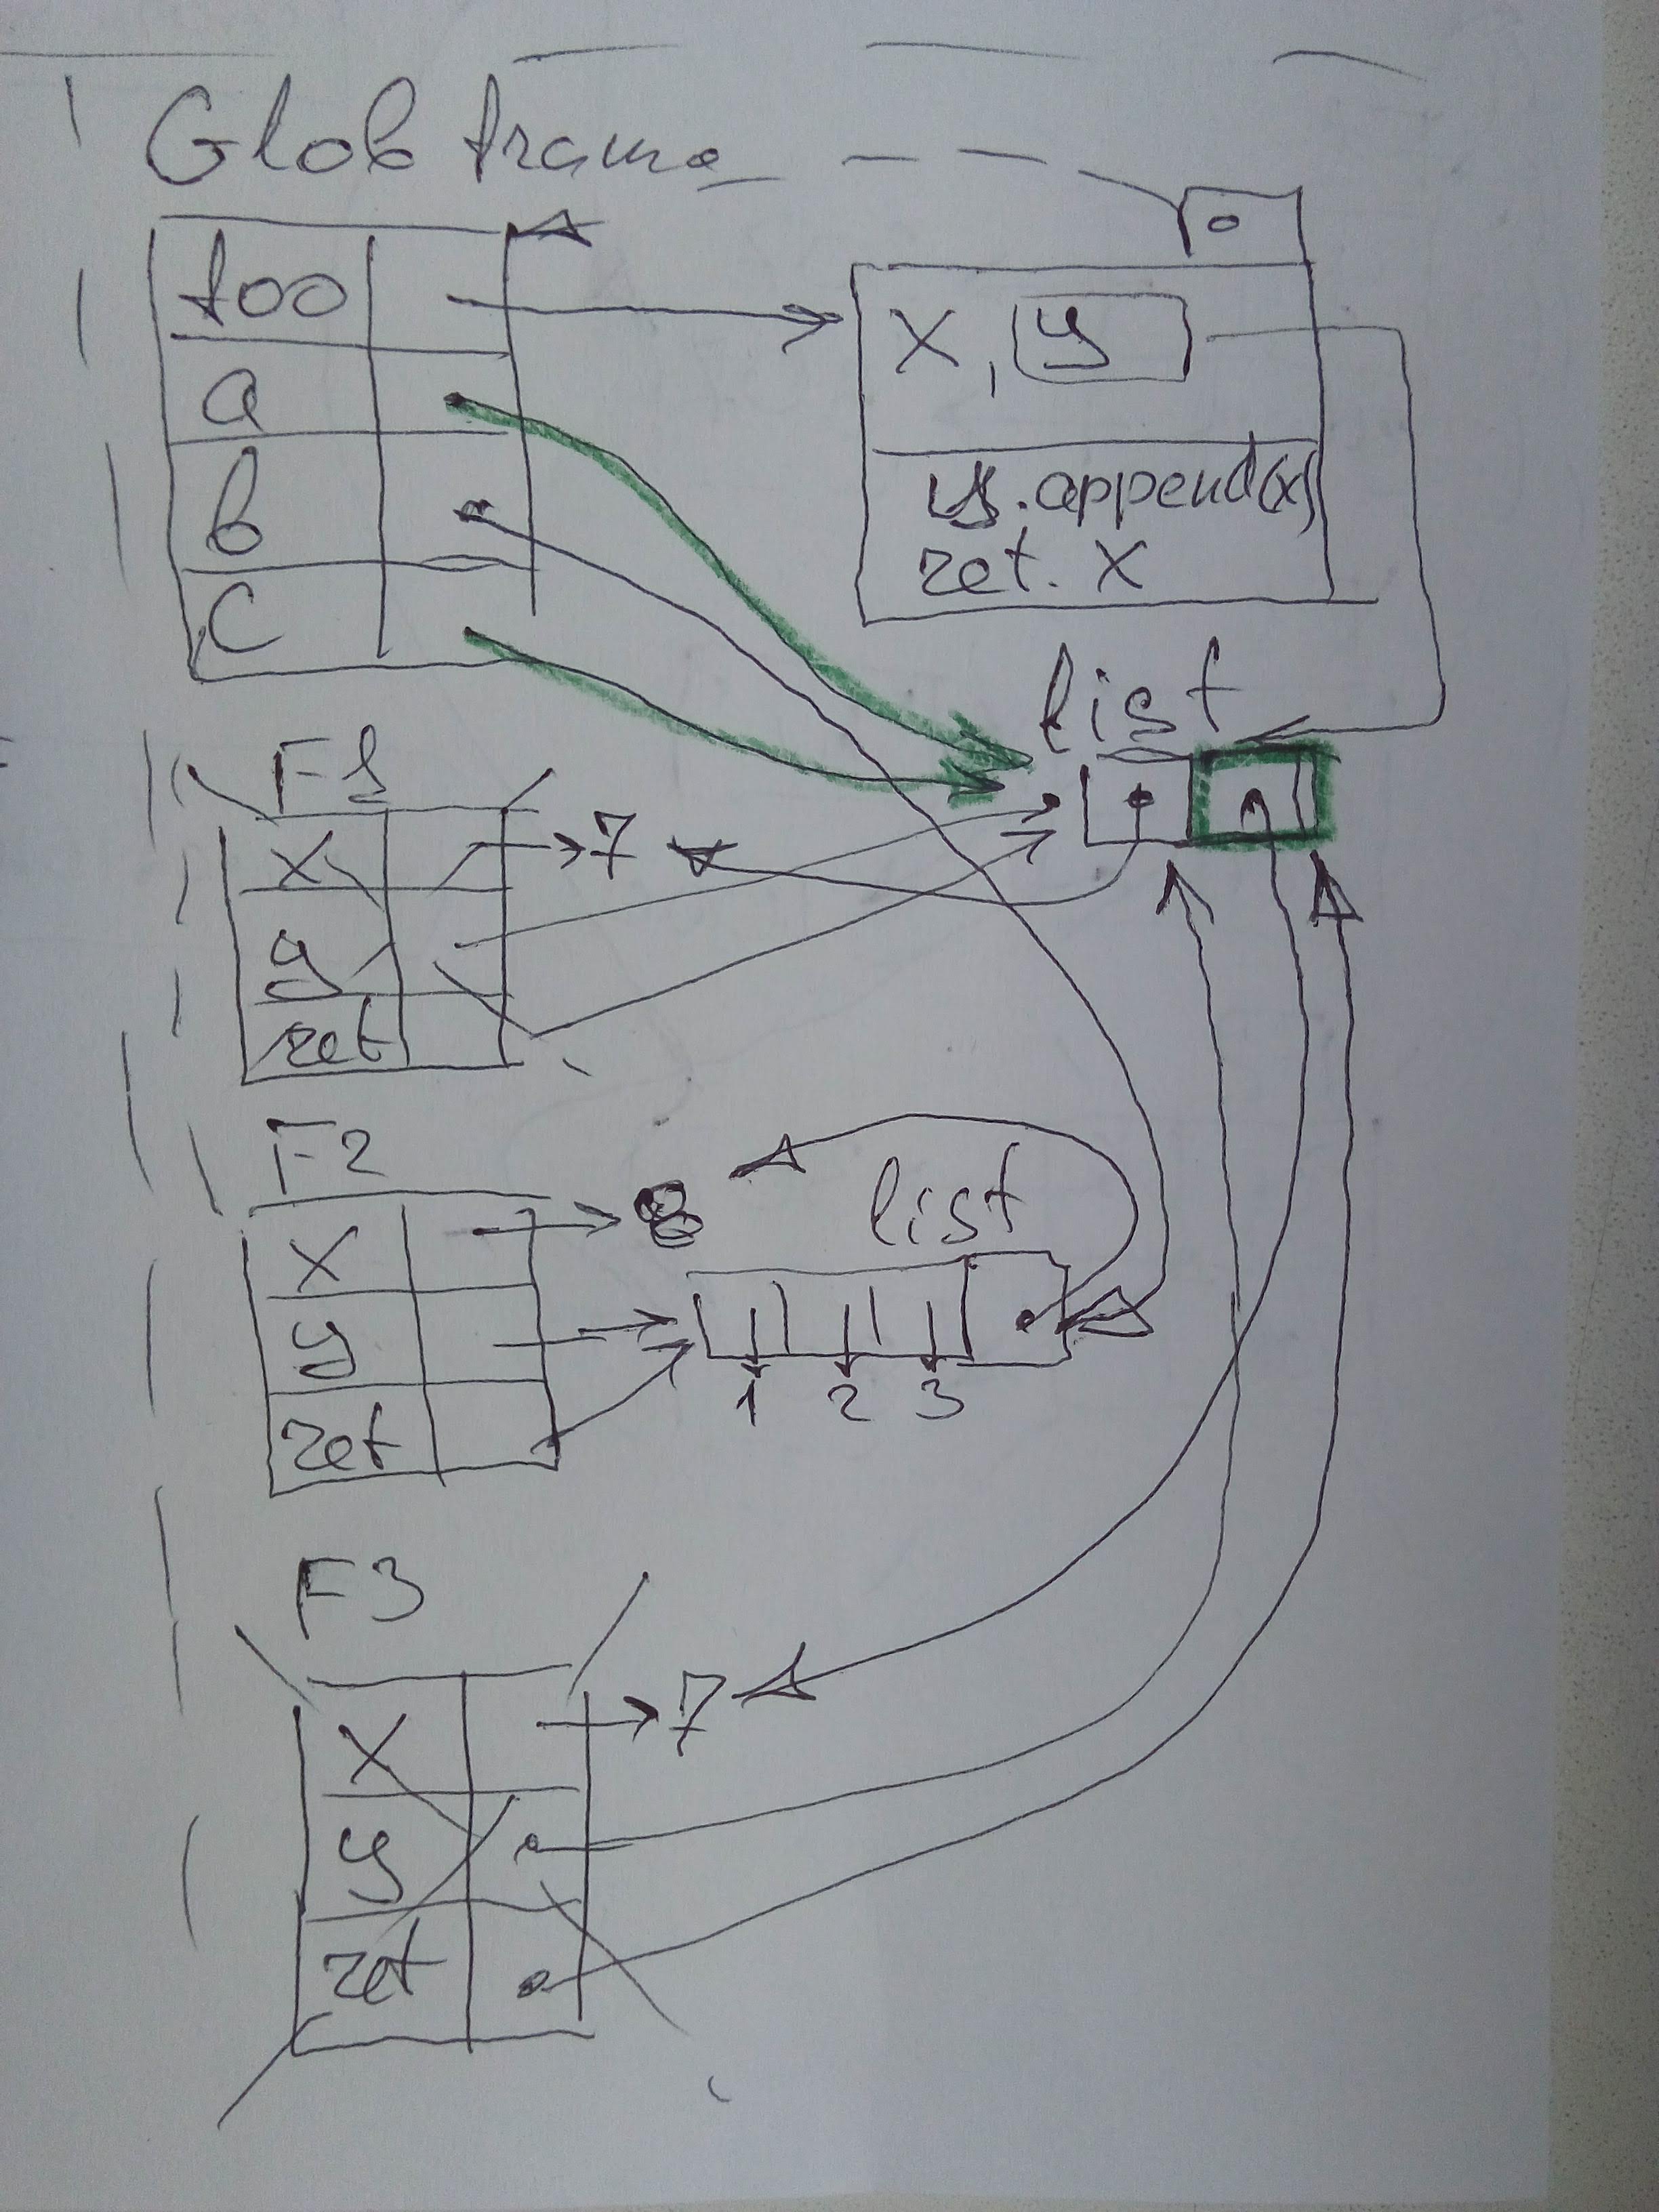 Glob frame
foo
a
b
c
x, y
y.append(x)
ret. x
list
F1
x
7
y
ret
F2
x
8
list
y
1 2 3
ret
F3
x
7
y
ret